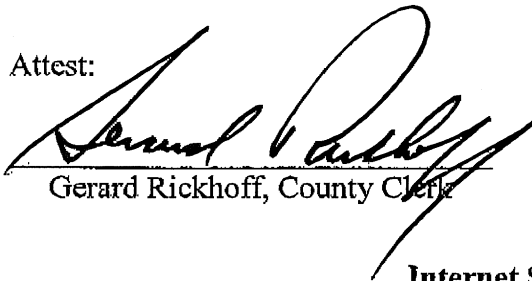 Attest:
Gerard Rickhoff
Gerard Rickhoff, County Clerk
Internet